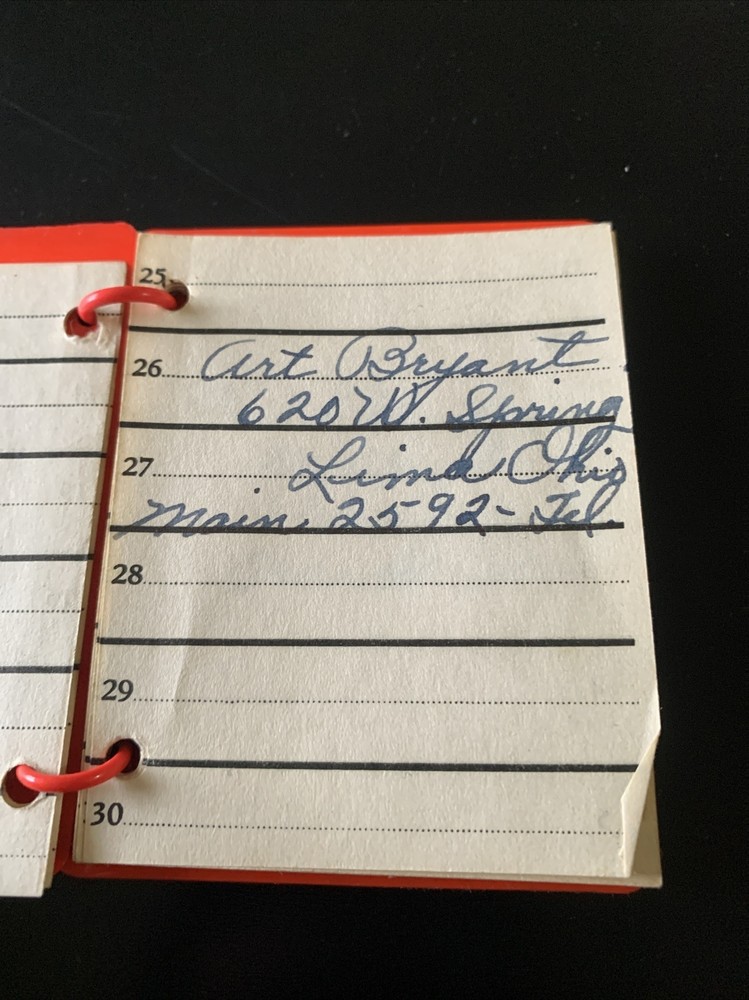 25
26 Art Bryant
620 W. Spring
27 Lima Ohio
Main 2592- Tel.
28
29
30